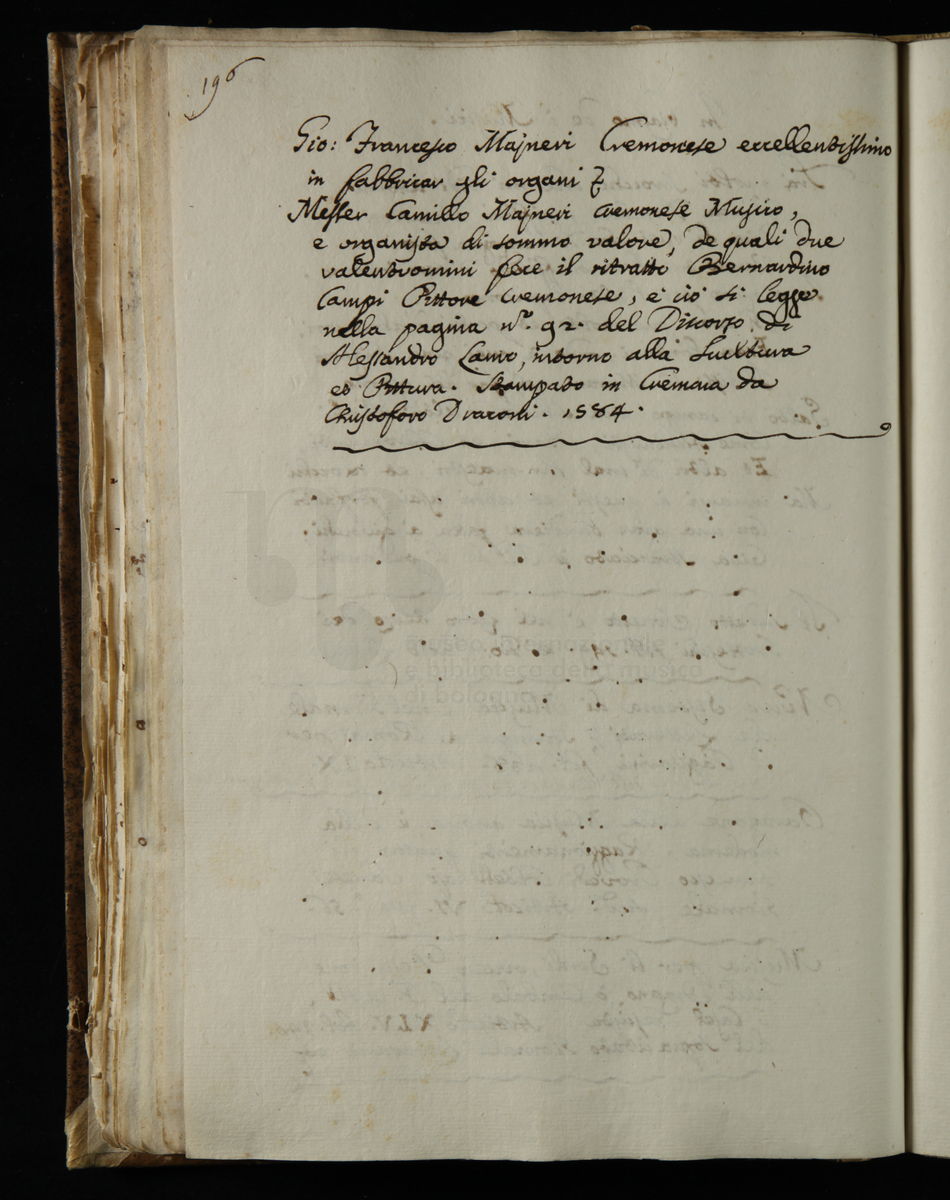 196
Gio: Francesco Majneri Cremonese eccellentissimo
in fabbricar gli organi
Messer Camillo Majneri Cremonese Musico,
e organista di sommo valore, de quali due
valentuomini fece il ritratto Bernardino
Campi Pittore Cremonese, e ciò si legge
nella pagina n.º 92. del Discorso di
Alessandro Lamo, intorno alla Scultura
et Pittura. Stampato in Cremona da
Christoforo Draconi. 1584.
museo internazionale
e biblioteca della musica
di bologna